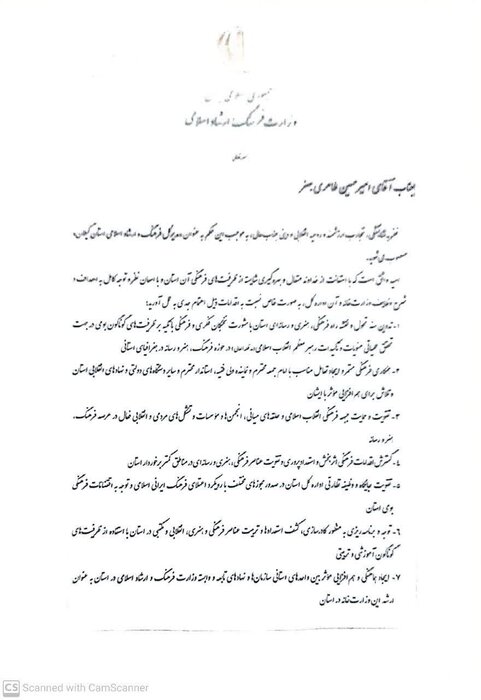 جمهوری اسلامی
وزارت فرهنگ و ارشاد اسلامی
جناب آقای امیرحسین طاهری بصفر
نظر به شایستگی، تجارب ارزشمند و روحیه انقلابی و دینی جنابعالی، به موجب این حکم به عنوان «مدیرکل فرهنگ و ارشاد اسلامی استان گیلان»
منصوب می‌شوید.
امید واثق است که با استعانت از خداوند متعال و بهره‌گیری شایسته از ظرفیت‌های فرهنگی آن استان و با امعان نظر و توجه کامل به اهداف و
شرح وظایف وزارت‌خانه و آن اداره‌کل، به صورت خاص نسبت به اقدامات ذیل اهتمام جدی به عمل آورید:
۱- تدوین سند تحول و نقشه راه فرهنگی، هنری و رسانه‌ای استان با مشورت نخبگان فکری و فرهنگی با تکیه بر ظرفیت‌های گوناگون بومی در جهت
تحقق عینیاتی منویات و تأکیدات رهبر معظم انقلاب اسلامی در حوزه فرهنگ، هنر و رسانه در جغرافیای استانی
۲- همکاری فرهنگی مستمر و ایجاد تعامل مناسب با امام جمعه محترم و نماینده ولی فقیه، استاندار محترم و سایر دستگاه‌های دولتی و نهادهای انقلابی استان
و تلاش برای هم‌افزایی مؤثر با ایشان
۳- تقویت و حمایت جبهه فرهنگی انقلاب اسلامی و حلقه‌های میانی، انجمن‌ها و مؤسسات و تشکل‌های مردمی و انقلابی فعال در عرصه فرهنگ،
هنر و رسانه
۴- گسترش اقدامات فرهنگی اثربخش و استعدادپروری و تقویت عناصر فرهنگی، هنری و رسانه‌ای در مناطق کمتر برخوردار استان
۵- تقویت جایگاه و وظیفه نظارتی اداره کل استان در صدور مجوزهای مختلف با رویکرد اعتلای فرهنگ ایرانی اسلامی و توجه به اقتضائات فرهنگی
بومی استان
۶- توجه و برنامه ریزی به منظور کادرسازی، کشف استعدادها و تربیت عناصر فرهنگی و هنری، انقلابی و مکتبی در استان با استفاده از ظرفیت‌های
گوناگون آموزشی و تربیتی
۷- ایجاد هماهنگی و هم افزایی مؤثر بین واحدهای استانی سازمان‌ها و نهادهای تابعه و وابسته وزارت فرهنگ و ارشاد اسلامی در استان به عنوان
ارشد این وزارت‌خانه در استان
CS Scanned with CamScanner